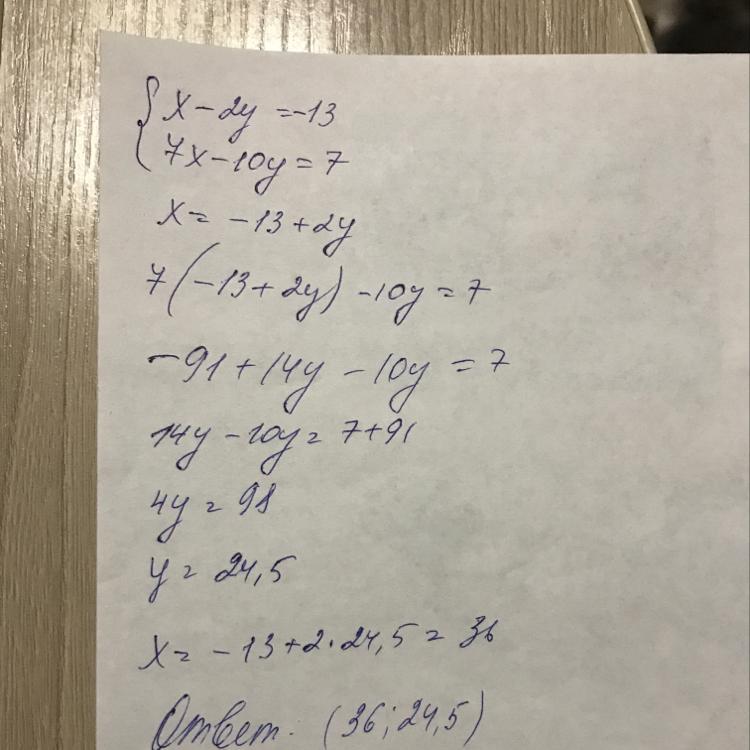 { x - 2y = -13
7x - 10y = 7
x = -13 + 2y
7(-13 + 2y) - 10y = 7
-91 + 14y - 10y = 7
14y - 10y = 7 + 91
4y = 98
y = 24,5
x = -13 + 2·24,5 = 36
Ответ. (36; 24,5)